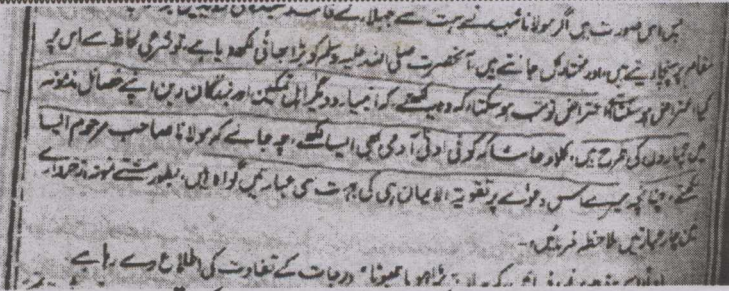 میں اس صورت میں اگر مولانا شہید نے بہت سے جہلاء کے
مقام پر پہنچا دیتے ہیں، اور مختار کل جانتے ہیں، آنحضرت صلی اللہ علیہ وسلم کو بڑا بھائی لکھ دیا ہے، تو شرعی لحاظ سے اس پر
کیا اعتراض ہو سکتا ہے، اعتراض تو جب ہو سکتا، کہ وہ یہ لکھتے کہ انبیاء و دیگر اہل تمکین اور بزرگان دین اپنے خصائل
میں ہماری طرح ہیں، کلا و حاشا کہ کوئی ادنیٰ آدمی بھی ایسا لکھے، چہ جائے کہ مولانا صاحب مرحوم ایسا
لکھتے، چنانچہ میرے اس دعوے پر تقویۃ الایمان ہی کی بہت سی عبارتیں گواہ ہیں، بطور مشتے نمونہ از خروارے
تین چار عبارتیں ملاحظہ فرمائیں:-
بڑا ہو یا چھوٹا درجات کے تفاوت کی اطلاع دے رہا ہے